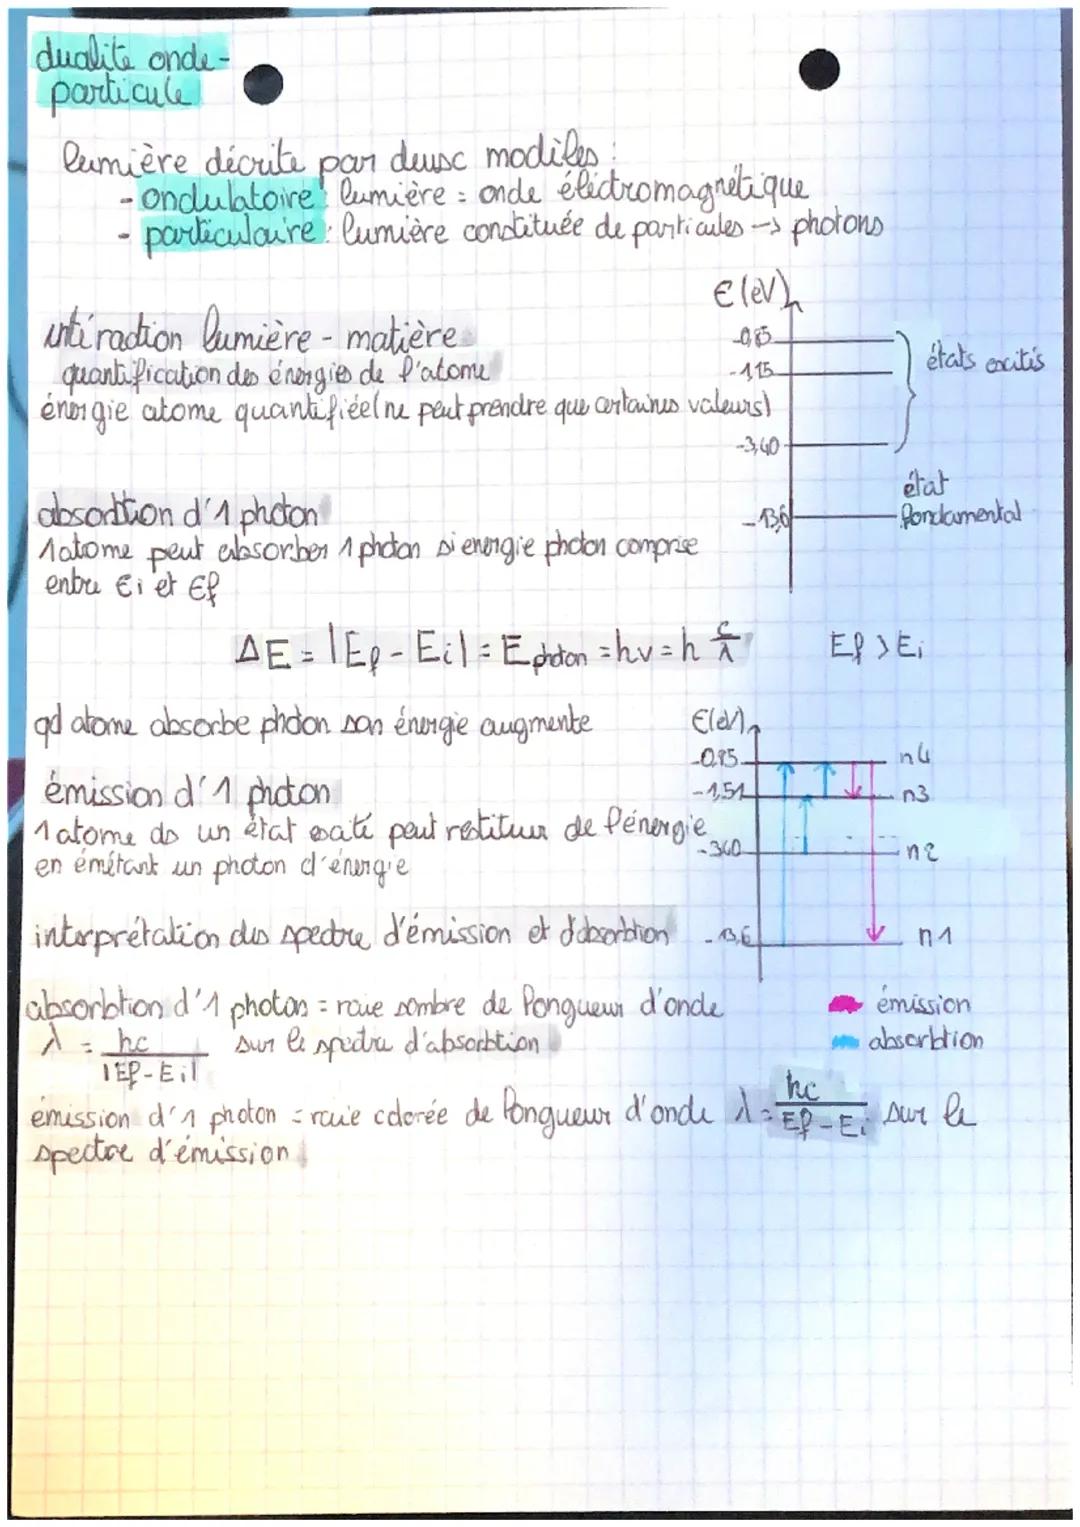 dualité onde-
particule
lumière décrite par deux modèles :
- ondulatoire : lumière = onde électromagnétique
- particulaire : lumière constituée de particules → photons
E (eV)
-0,85
intéraction lumière - matière
états excités
-1,15
quantification des énergies de l'atome
énergie atome quantifiée (ne peut prendre que certaines valeurs)
-3,40
état
fondamental
-13,6
absorbtion d'1 photon
1 atome peut absorber 1 photon si energie photon comprise
entre Ei et Ef
ΔE = |Ef - Ei| = E photon = hν = h c/λ Ef > Ei
qd atome absorbe photon son énergie augmente
E(eV)
-0,85 n4
émission d'1 photon
-1,51 n3
1 atome ds un état excité peut restituer de l'énergie
-3,40 n2
en émétant un photon d'énergie
interprétation des spectre d'émission et d'absorbtion
-13,6 n1
absorbtion d'1 photon = raie sombre de longueur d'onde
émission
λ = hc / |Ef - Ei| sur le spectre d'absorbtion
absorbtion
émission d'1 photon = raie colorée de longueur d'onde λ = hc / Ef - Ei sur le
spectre d'émission